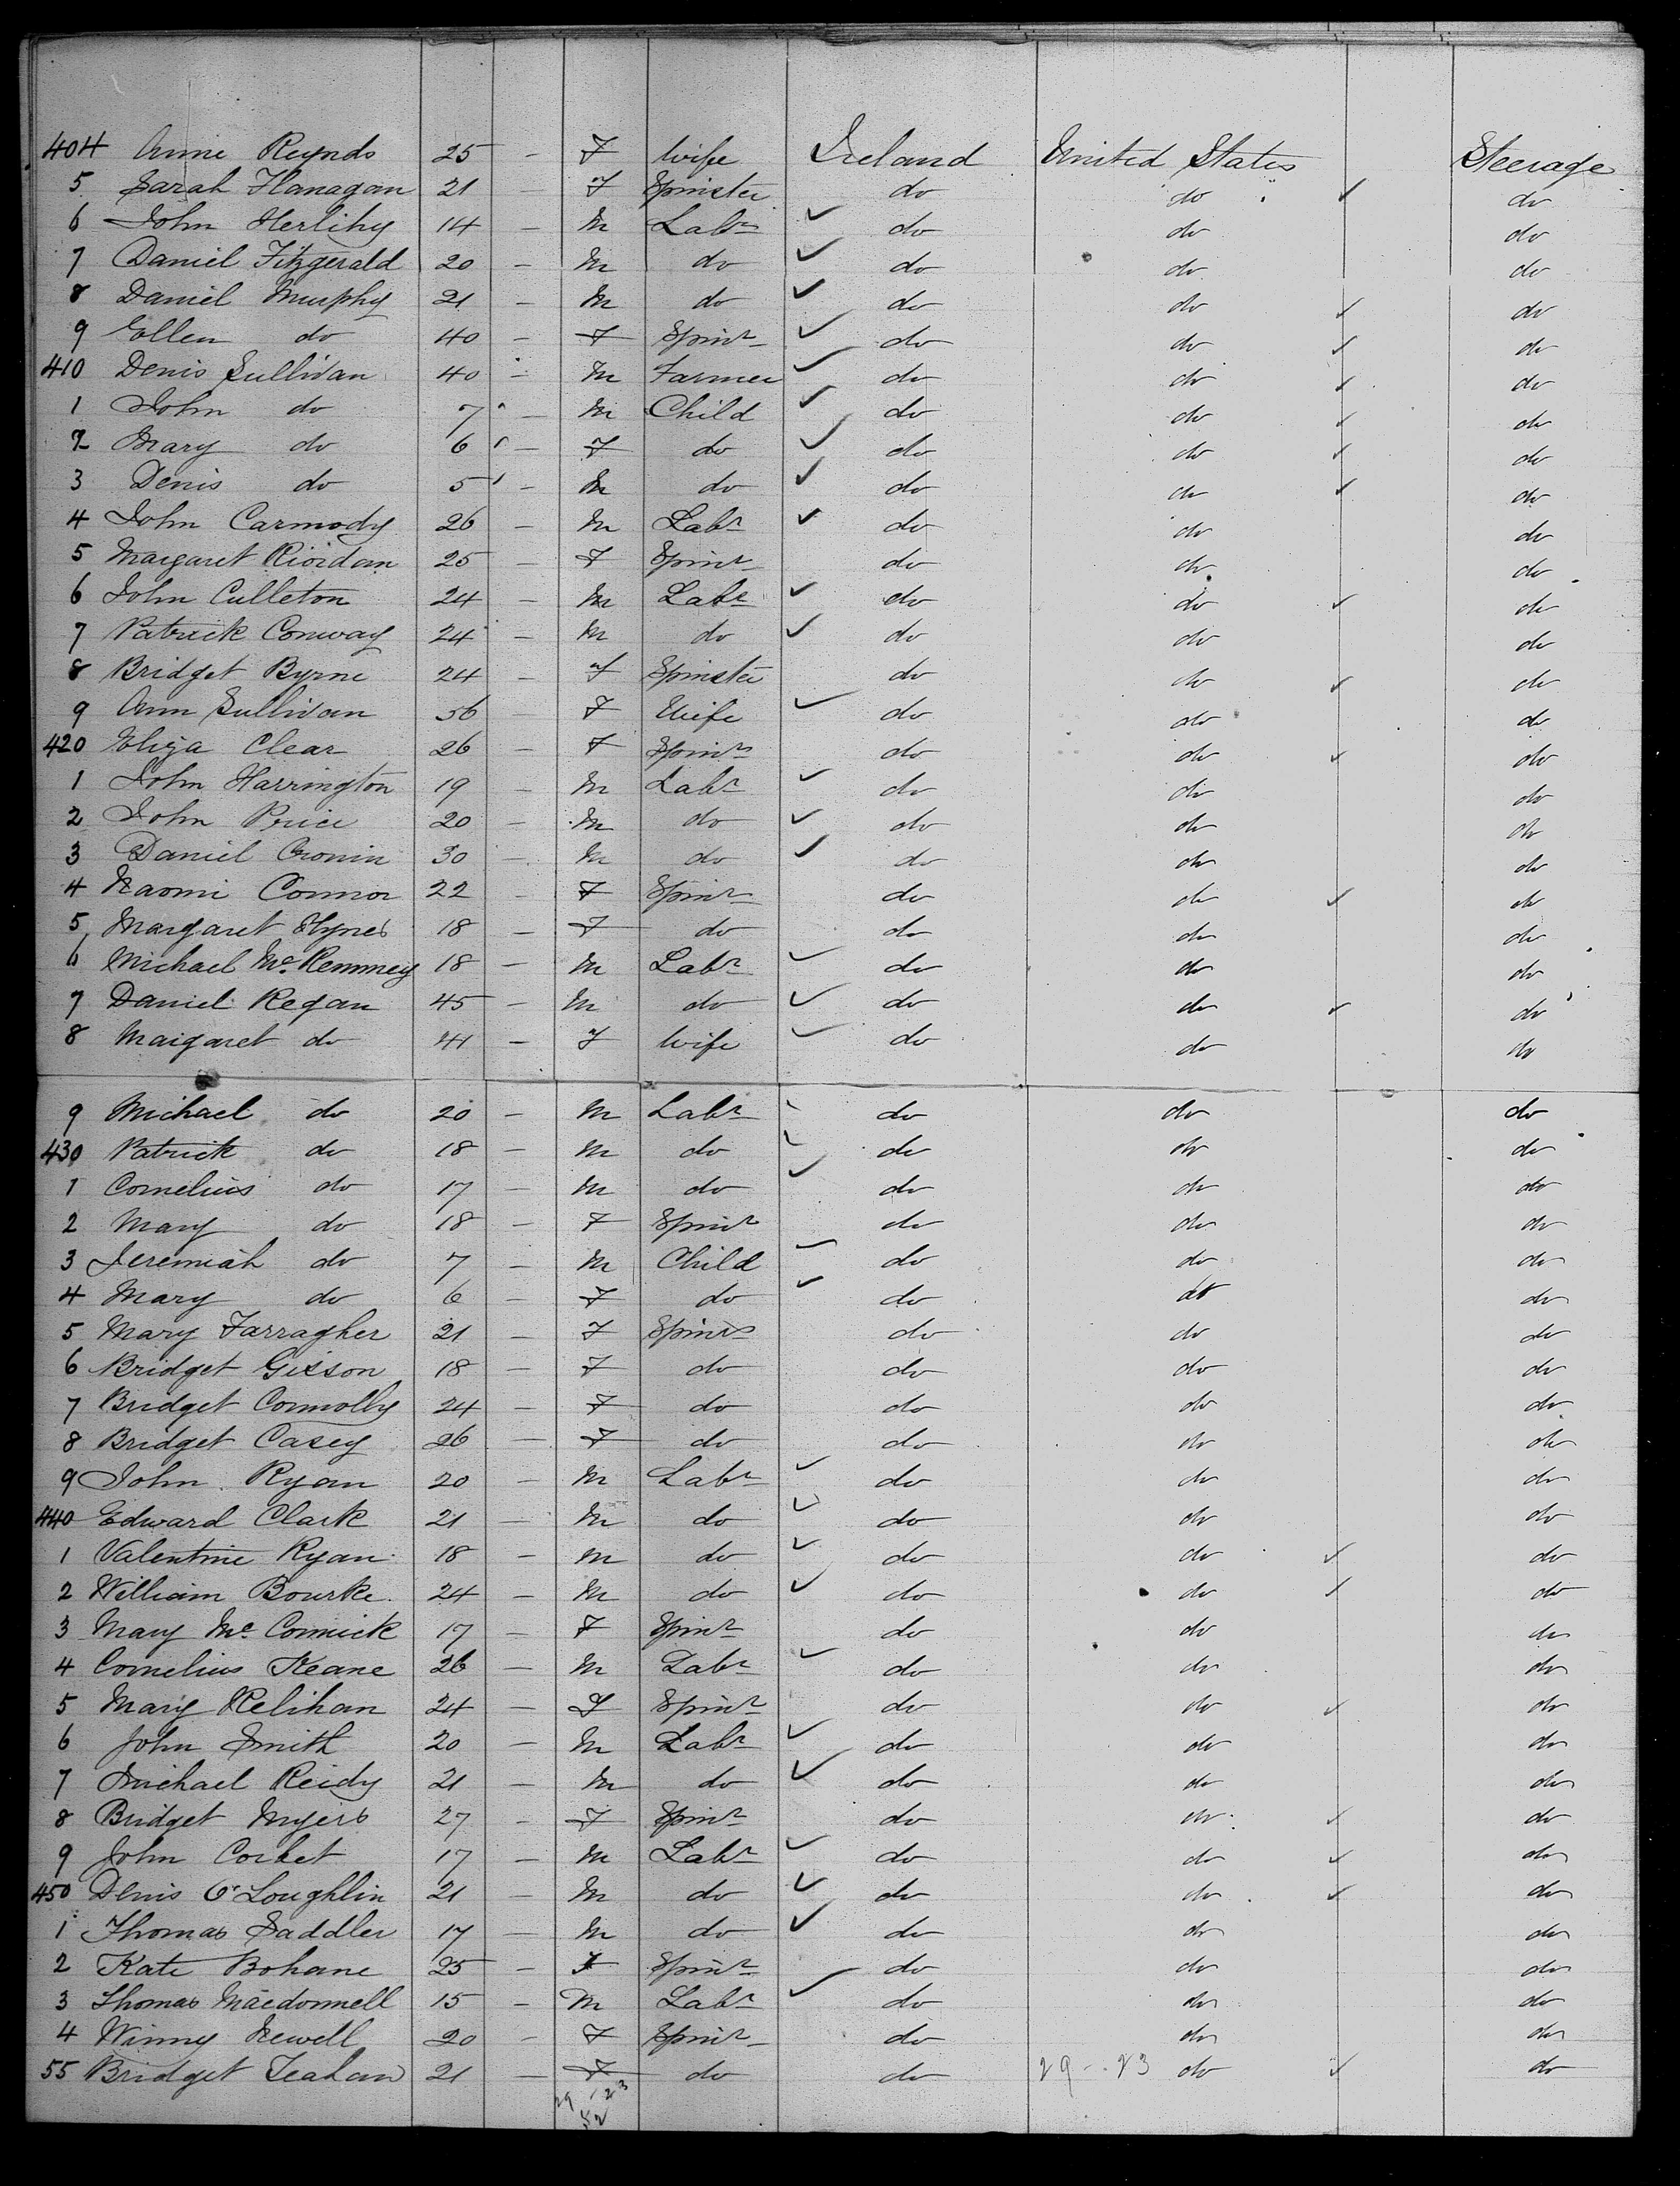 404 Annie Reynds 25 - F Wife Ireland United States Steerage
5 Sarah Flanagan 21 - F Spinster do do do
6 John Herlihy 14 - M Labr do do do
7 Daniel Fitzgerald 20 - M do do do do
8 Daniel Murphy 21 - M do do do do
9 Ellen do 40 - F Spinr do do do
410 Denis Sullivan 40 - M Farmer do do do
1 John do 7 - M Child do do do
2 Mary do 6 - F do do do do
3 Denis do 5 - M do do do do
4 John Carmody 26 - M Labr do do do
5 Margaret Riordan 25 - F Spinr do do do
6 John Culleton 24 - M Labr do do do
7 Patrick Conway 24 - M do do do do
8 Bridget Byrne 24 - F Spinster do do do
9 Ann Sullivan 56 - F Wife do do do
420 Eliza Clear 26 - F Spinr do do do
1 John Harrington 19 - M Labr do do do
2 John Price 20 - M do do do do
3 Daniel Cronin 30 - M do do do do
4 Naomi Connor 22 - F Spinr do do do
5 Margaret Hynes 18 - F do do do do
6 Michael Mc 18 - M Labr do do do
7 Daniel Regan 45 - M do do do do
8 Margaret do 41 - F Wife do do do
9 Michael do 20 - M Labr do do do
430 Patrick do 18 - M do do do do
1 Cornelius do 17 - M do do do do
2 Mary do 18 - F Spinr do do do
3 Jeremiah do 7 - M Child do do do
4 Mary do 6 - F do do do do
5 Mary Farragher 21 - F Spinr do do do
6 Bridget 18 - F do do do do
7 Bridget Connolly 24 - F do do do do
8 Bridget Casey 26 - F do do do do
9 John Ryan 20 - M Labr do do do
440 Edward Clark 21 - M do do do do
1 Valentine Ryan 18 - M do do do do
2 William Bourke 24 - M do do do do
3 Mary Mc Cormick 17 - F Spinr do do do
4 Cornelius Keane 26 - M Labr do do do
5 Mary Relihan 24 - F Spinr do do do
6 John Smith 20 - M Labr do do do
7 Michael Reidy 21 - M do do do do
8 Bridget Myers 27 - F Spinr do do do
9 John Corbet 17 - M Labr do do do
450 Denis O'Loughlin 21 - M do do do do
1 Thomas Saddler 17 - M do do do do
2 Kate Bohane 25 - F Spinr do do do
3 Thomas Macdonnell 15 - M Labr do do do
4 Winny Newell 20 - F Spinr do do do
55 Bridget Teahan 21 - F do do 29 - 23 do do
29 - 23
52